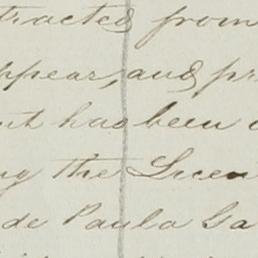 tracted from
ppear, and pr
nt has been
ng the Licen
de Paula Ga